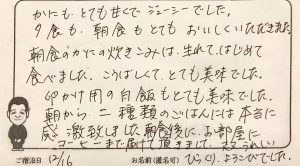 かにも、とても甘くてジューシーでした。
夕食も、朝食もとてもおいしくいただきました。
朝食のかにの炊きこみは、生れて、はじめて
食べました。こうばしくて、とても美味でした。
卵かけ用の白飯もとても美味でした。
朝から二種類のごはんには本当に
感激致しました。朝食後に、お部屋に
コーヒーまで届けて頂きまして、
うれしい
びっくり、ようこびでした。
ご宿泊日 12/16 お名前(匿名可)